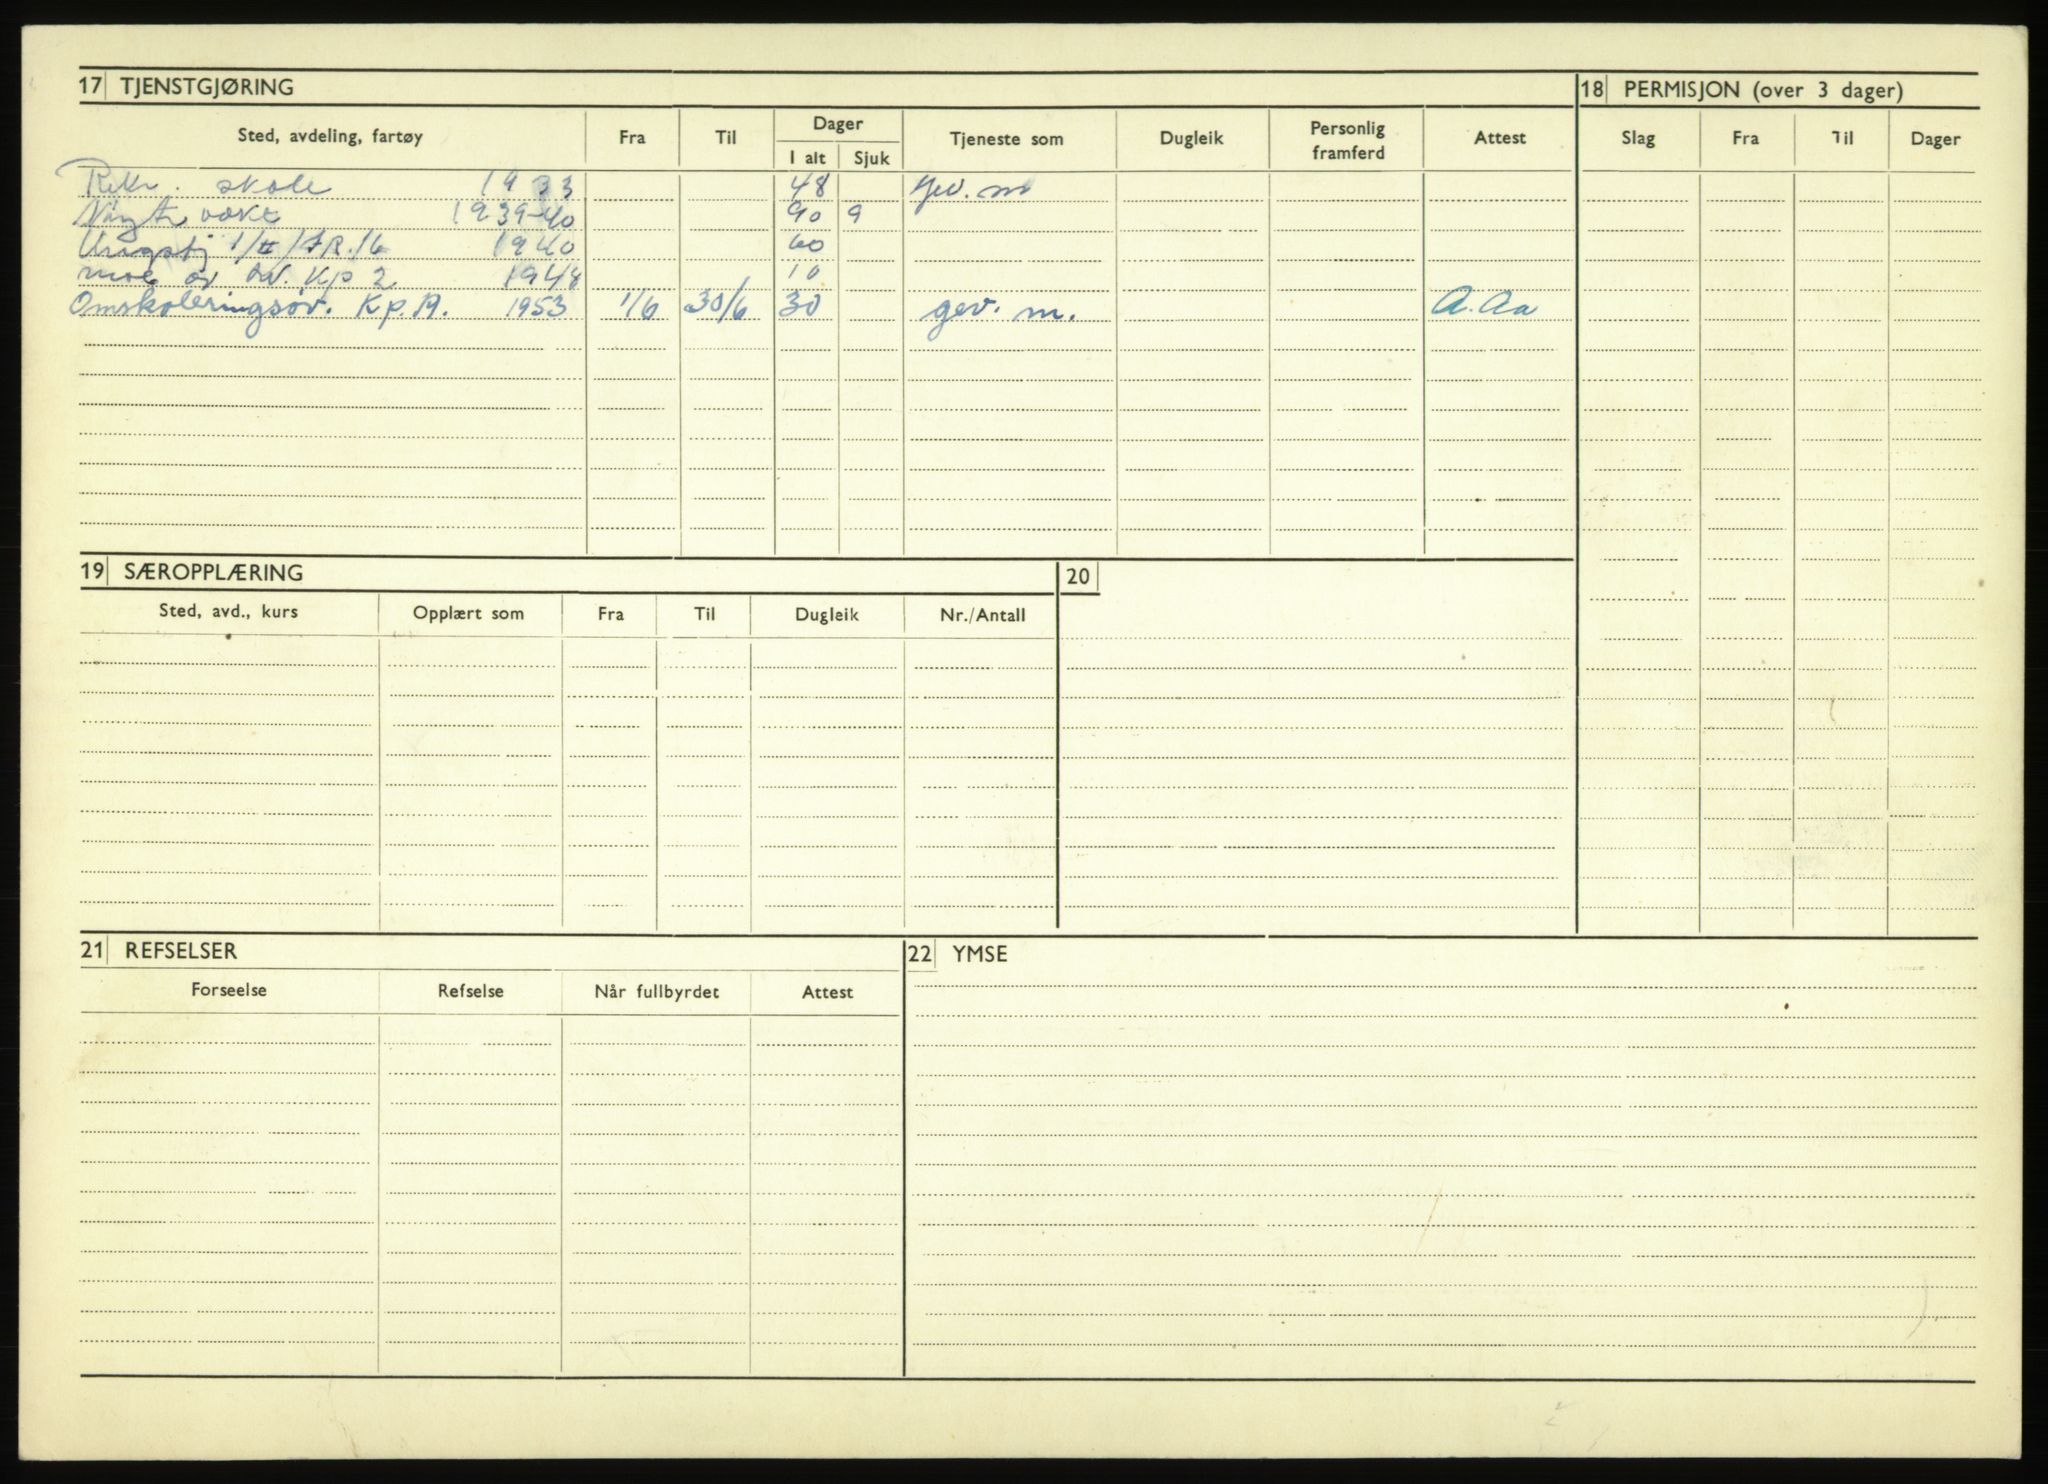 17 TJENSTGJØRING
18 PERMISJON (over 3 dager)
Sted, avdeling, fartøy Fra Til Dager Tjeneste som Dugleik Personlig framferd Attest Slag Fra Til Dager
I alt Sjuk
Rekr. skole 1933 48 gev. m
Nøytr vakt 1939-40 90 9
Krigstj 1/II/IR.16 1940 60
1948 10
Omskoleringsøv. Kp. A. 1953 1/6 30/6 30 gev. m. A. Aa
19 SÆROPPLÆRING
20
Sted, avd., kurs Opplært som Fra Til Dugleik Nr./Antall
21 REFSELSER
22 YMSE
Forseelse Refselse Når fullbyrdet Attest